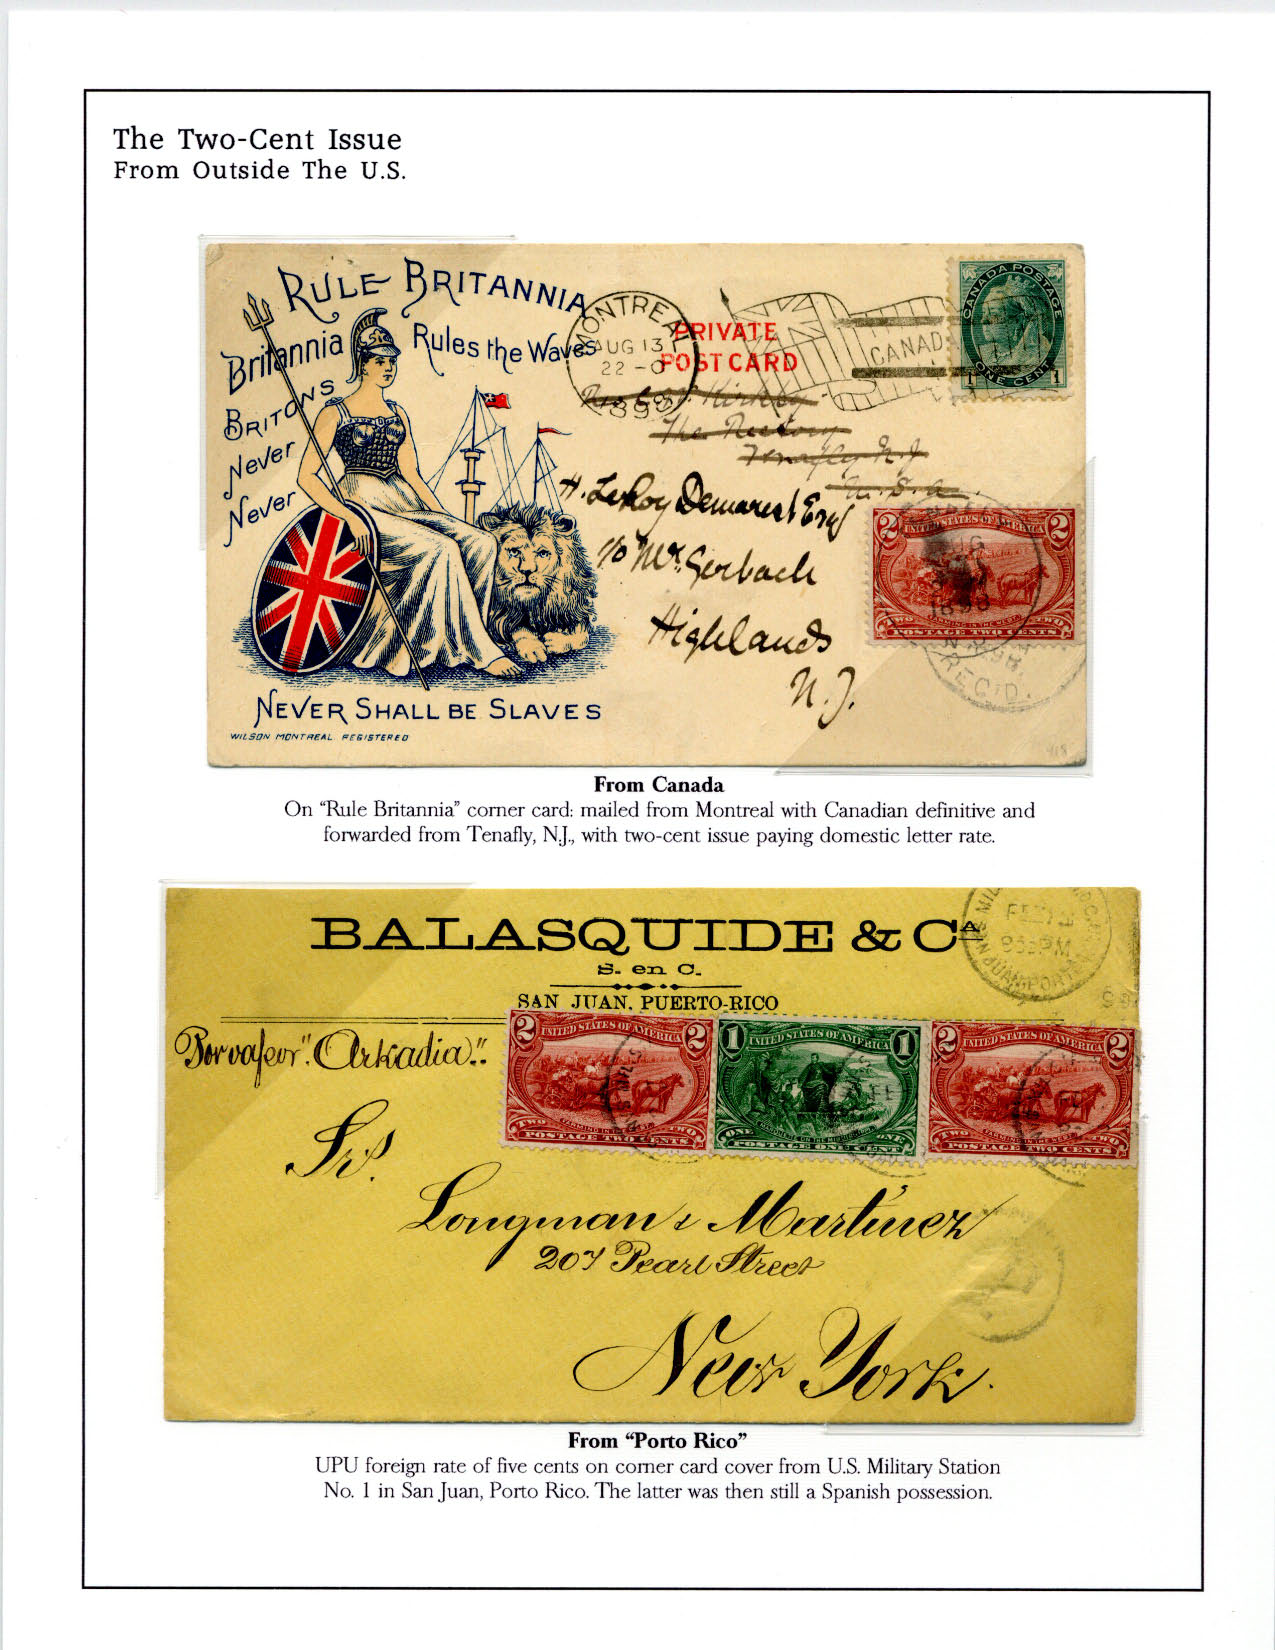 The Two-Cent Issue
From Outside The U.S.
RULE BRITANNIA
Britannia Rules the Waves
BRITONS
Never
Never
NEVER SHALL BE SLAVES
WILSON MONTREAL REGISTERED
MONTREAL
AUG 13
22-0
1898
PRIVATE
POST CARD
CANADA
CANADA POSTAGE
1 ONE CENT 1
The Rectory
Tenafly N.J.
U.S.A.
H. LeRoy Demarest Esq
c/o Mr. Gerbach
Highlands
N.J.
2 UNITED STATES OF AMERICA 2
FARMING IN THE WEST
TWO POSTAGE TWO CENTS TWO
1898
REC'D.
From Canada
On “Rule Britannia” corner card: mailed from Montreal with Canadian definitive and
forwarded from Tenafly, N.J., with two-cent issue paying domestic letter rate.
BALASQUIDE & CA
S. en C.
SAN JUAN, PUERTO-RICO
Por vapor "Arkadia".
2 UNITED STATES OF AMERICA 2
TWO POSTAGE TWO CENTS TWO
1 UNITED STATES OF AMERICA 1
ONE POSTAGE ONE CENT ONE
2 UNITED STATES OF AMERICA 2
TWO POSTAGE TWO CENTS TWO
Srs.
Longman & Martinez
207 Pearl Street
New York.
From “Porto Rico”
UPU foreign rate of five cents on corner card cover from U.S. Military Station
No. 1 in San Juan, Porto Rico. The latter was then still a Spanish possession.